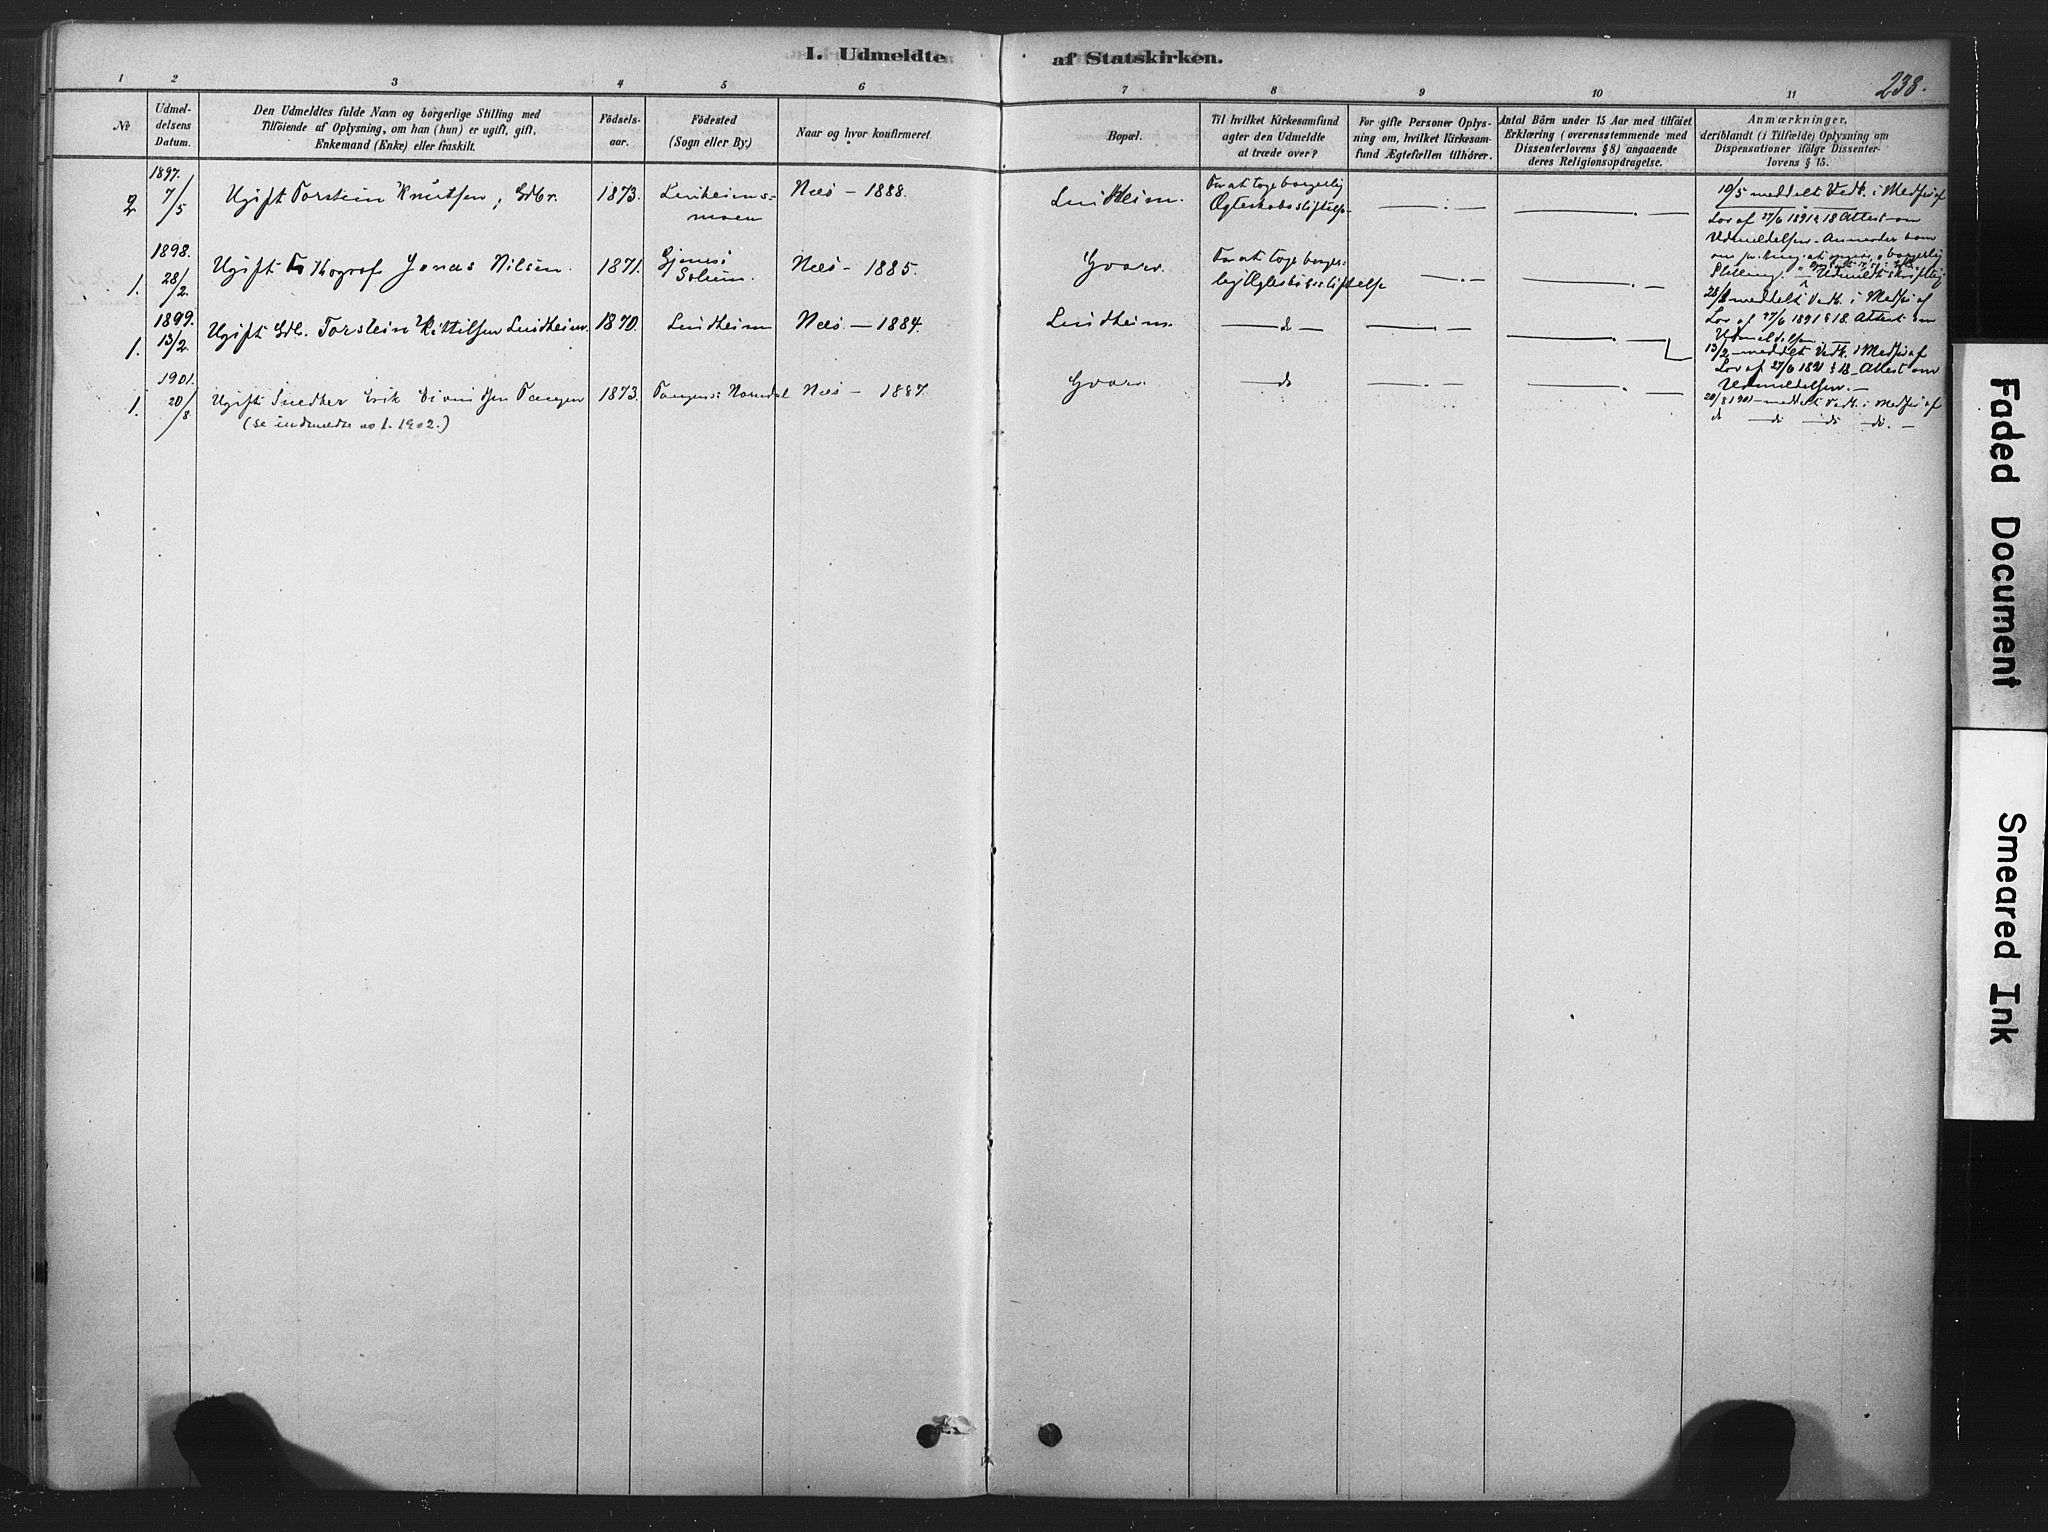 I. Udmeldte af Statskirken.
238.
1 2 3 4 5 6 7 8 9 10 11
No
Udmel-
delsens
Datum.
Den Udmeldtes fulde Navn og borgerlige Stilling med
Tilføiende af Oplysning, om han (hun) er ugift, gift,
Enkemand (Enke) eller fraskilt.
Fødsels-
aar.
Fødested
(Sogn eller By.)
Naar og hvor konfirmeret.
Bopæl.
Til hvilket Kirkesamfund
agter den Udmeldte
at træde over?
For gifte Personer Oplys-
ning om, hvilket Kirkesam-
fund Ægtefællen tilhører.
Antal Børn under 15 Aar med tilføiet
Erklæring (overensstemmende med
Dissenterlovens § 8) angaaende
deres Religionsopdragelse.
Anmærkninger,
deriblandt (i Tilfælde) Oplysning om
Dispensationer ifølge Dissenter-
lovens § 15.
1897.
2 7/5 Ugift Torstein Knutsen, Gdbr. 1873. Lindheims-
moen
Næs — 1888. Lindheim.
For at tage borgerlig
Ægteskabsstiftelse
— . — — . —
10/5 meddelt Vedk. i Medfør af
Lov af 27/6 1891 § 18 Attest om
Udmeldelsen. Anmoder som
1898.
1. 28/2 Ugift Fotograf Jonas Nilsen. 1871. Gjemsø
Solum.
Næs — 1885. Gvarv.
For at tage borger-
lig Ægteskabsstiftelse
— . — — . —
borgerlig
Stilling
28/2 meddelt Vedk. i Medfør af
Lov af 27/6 1891 § 18. Attest om
Udmeldelsen.
1899.
1. 13/2. Ugift Gdl. Torstein Kittilsen Lindheim. 1870. Lindheim Næs — 1884. Lindheim. — do — — . — — . —
13/2 meddelt Vedk. i Medfør af
Lov af 27/6 1891 § 18 Attest om
Udmeldelsen. —
1901.
1. 20/8 Ugift Snedker Erik Eivindsen Tangen 1873. Tangen i Næs — 1887. Gvarv. — do — . — — . —
(se indmeldte no 1. 1902.)
20/8 1901 meddelt Vedk. i Medfør af
do — do — do — do. —
Faded Document
Smeared Ink